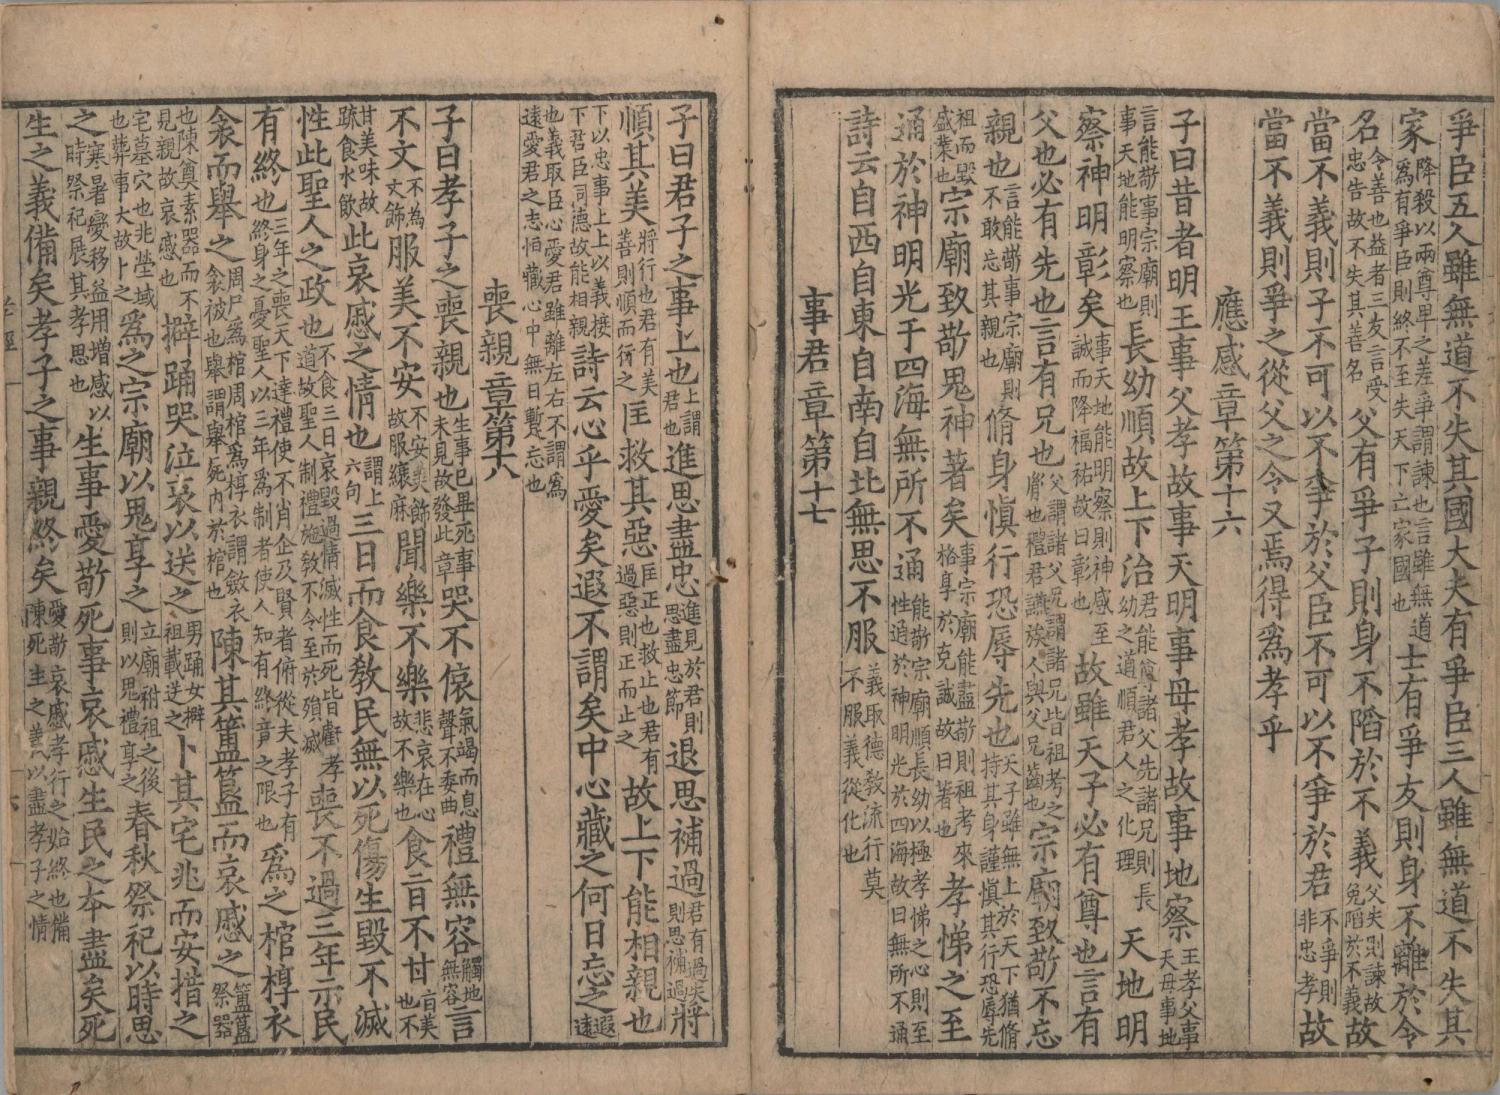 爭臣五人雖無道不失其國大夫有爭臣三人雖無道不失其
家降殺以兩尊卑之差爭謂諫也言雖無道爲有爭臣則終不至失天下亡家國也士有爭友則身不離於令
名令善也益者三友言受忠告故不失其善名父有爭子則身不陷於不義父失則諫故免陷於不義故
當不義則子不可以不爭於父臣不可以不爭於君不爭則非忠孝故
當不義則爭之從父之令又焉得爲孝乎
應感章第十六
子曰昔者明王事父孝故事天明事母孝故事地察王者父事天母事地
言能敬事宗廟則事天地能明察也長幼順故上下治君能尊諸父先諸兄則長幼之道順君人之化理天地明
察神明彰矣事天地能明察則神感至誠而降福祐故曰彰也故雖天子必有尊也言有
父也必有先也言有兄也父謂諸父兄謂諸兄皆祖考之胤也禮君讌族人與父兄齒也宗廟致敬不忘
親也言能敬事宗廟則不敢忘其親也脩身慎行恐辱先也天子雖無上於天下猶脩持其身謹慎其行恐辱先
祖而毀盛業也宗廟致敬鬼神著矣事宗廟能盡敬則祖考來格享於克誠故曰著也孝悌之至
通於神明光于四海無所不通能敬宗廟順長幼以極孝悌之心則至性通於神明光於四海故曰無所不通
詩云自西自東自南自北無思不服義取德敎流行莫不服義從化也
事君章第十七
子曰君子之事上也上謂君也進思盡忠進見於君則思盡忠節退思補過君有過失則思補過將
順其美將行也君有美善則順而行之匡救其惡匡正也救止也君有過惡則正而止之故上下能相親也
下以忠事上上以義接下君臣同德故能相親詩云心乎愛矣遐不謂矣中心藏之何日忘之遐遠
也義取臣心愛君雖離左右不謂爲遠愛君之志恒藏心中無日蹔忘也
喪親章第十八
子曰孝子之喪親也生事已畢死事未見故發此章哭不偯氣竭而息聲不委曲禮無容觸地無容言
不文不爲文飾服美不安不安美飾故服縗麻聞樂不樂悲哀在心故不樂也食旨不甘旨美也不
甘美味故疏食水飲此哀慼之情也謂上六句三日而食敎民無以死傷生毀不滅
性此聖人之政也不食三日哀毀過情滅性而死皆虧孝道故聖人制禮施敎不令至於殞滅喪不過三年示民
有終也三年之喪天下達禮使不肖企及賢者俯從夫孝子有終身之憂聖人以三年爲制者使人知有終竟之限也爲之棺椁衣
衾而舉之周尸爲棺周棺爲椁衣謂斂衣衾被也舉謂舉死內於棺也陳其簠簋而哀慼之簠簋祭器
也陳奠素器而不見親故哀慼也擗踊哭泣哀以送之男踊女擗祖載送之卜其宅兆而安措之
宅墓穴也兆塋域也葬事大故卜之爲之宗廟以鬼享之立廟祔祖之後則以鬼禮享之春秋祭祀以時思
之寒暑變移益用增感以時祭祀展其孝思也生事愛敬死事哀慼生民之本盡矣死
生之義備矣孝子之事親終矣愛敬哀慼孝行之始終也備陳死生之義以盡孝子之情
孝經